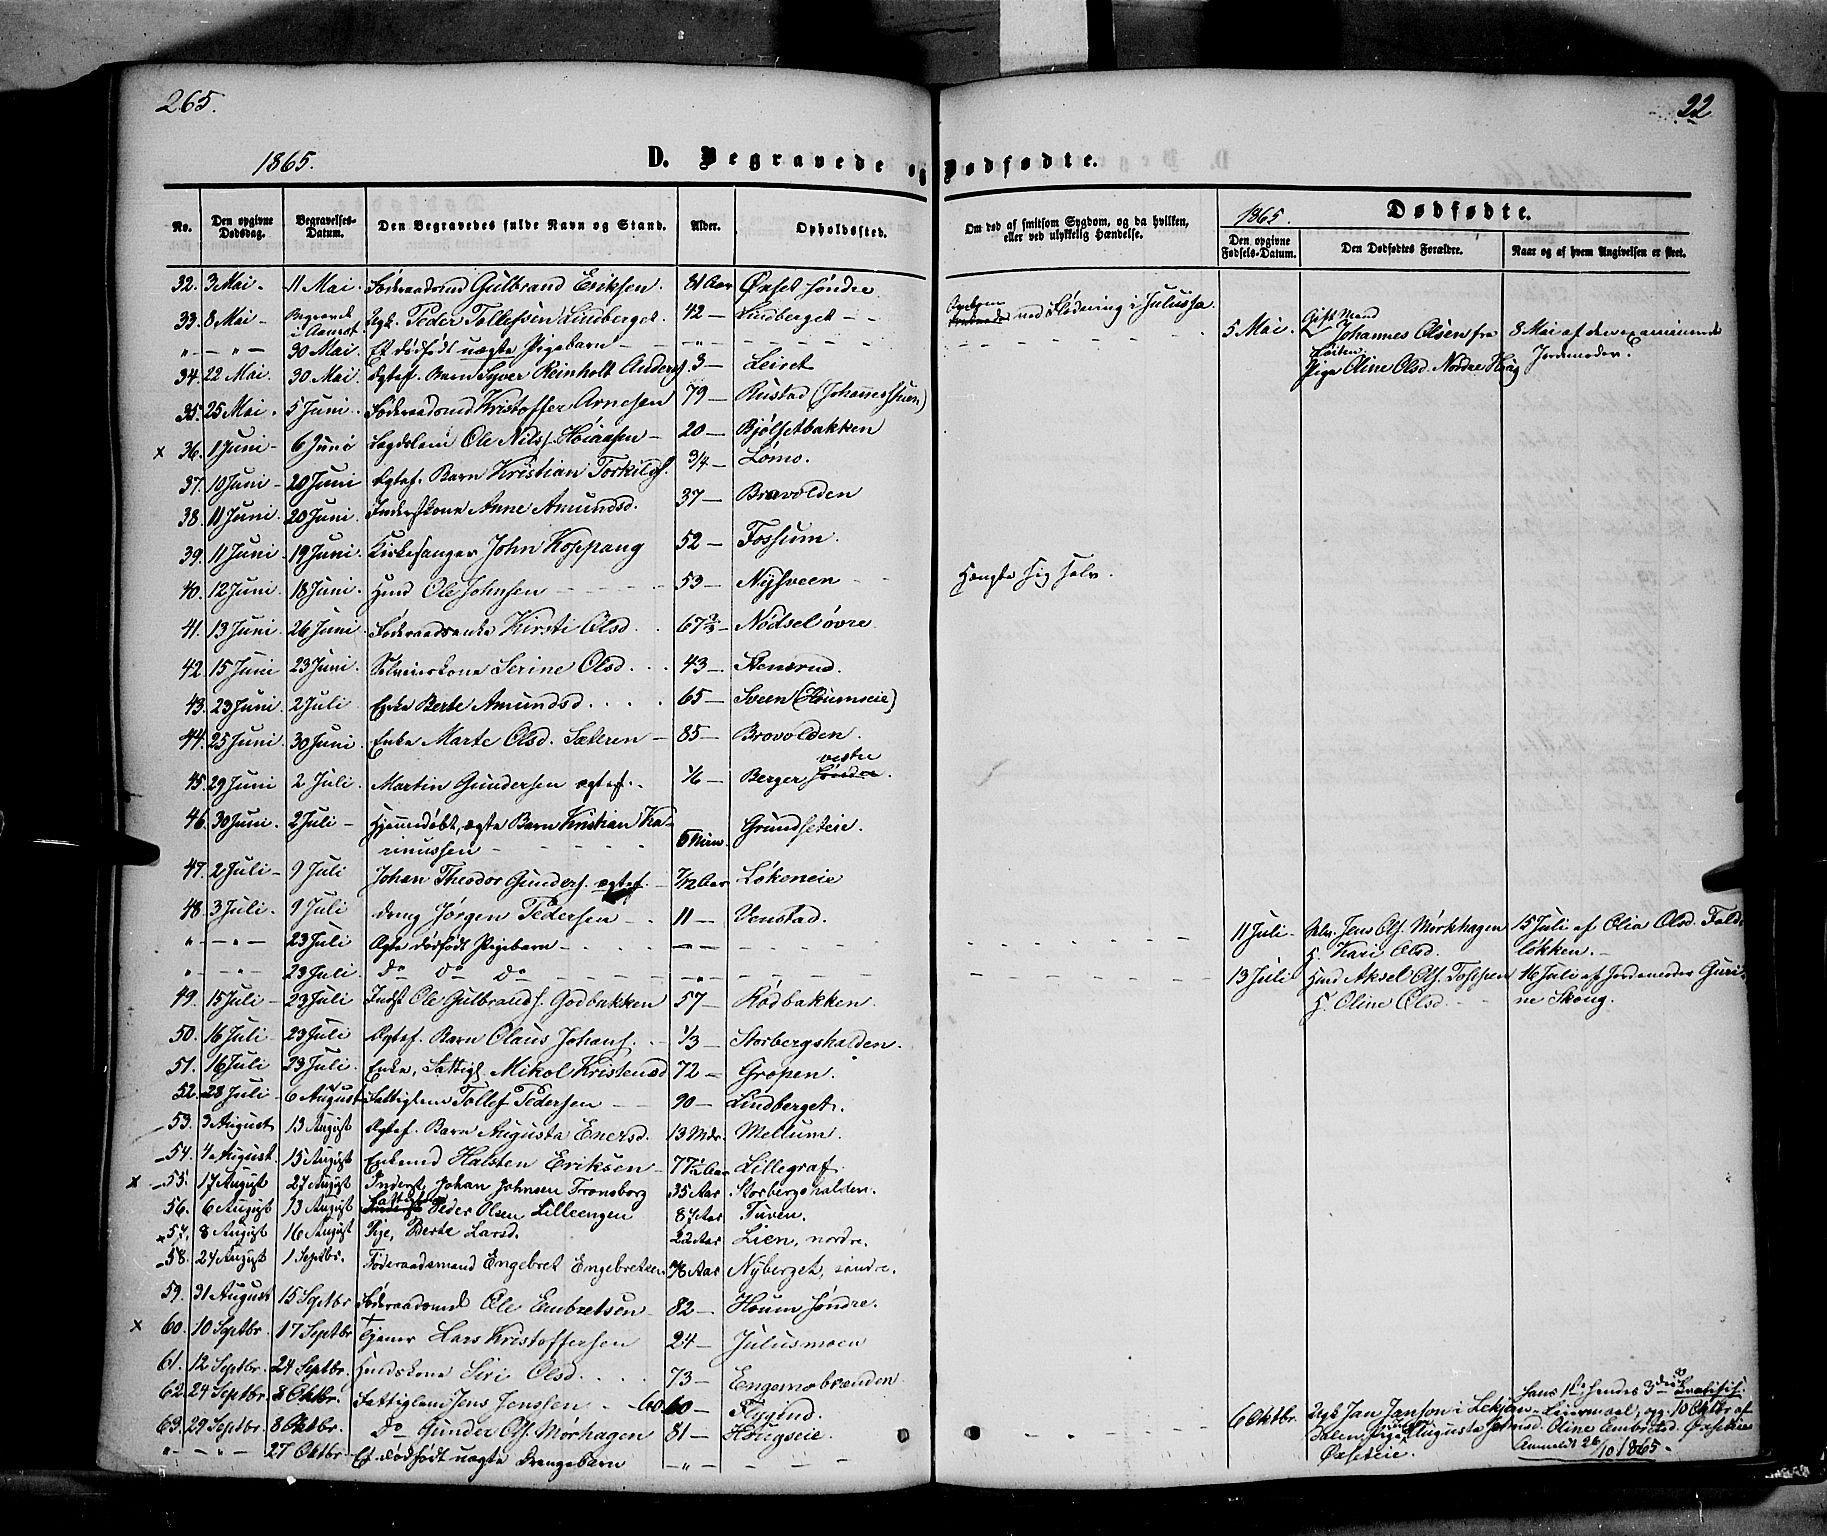 265.
22
1865.
D. Begravede og Dødfødte.
No.
Den opgivne Dødsdag.
Begravelses-Datum.
Den Begravedes fulde Navn og Stand.
Alder.
Opholdssted.
Om død af smitsom Sygdom, og da hvilken, eller ved ulykkelig Hændelse.
1865.
Dødfødte.
Den opgivne Fødsels-Datum.
Den Dødfødtes Forældre.
Naar og af hvem Angivelsen er skeet.
32. 3 Mai. 11 Mai. Føderaadsmd Gulbrand Eriksen. 81 Aar Øxset søndre
33. 8 Mai - Begravet i Aamot Ugk. Peder Tollefsen Lindberget. 42 - Lindberget - - ved Flødning i Julussa.
" - " - 30 Mai. Et dødfødt uægte Pigebarn - - " - 5 Mai. Gift Mand Johannes Olsen fra Løiten. Pige Oline Olsd. Nordre Hng 8 Mai af den examinerede Jordemoder.
34. 22 Mai. 30 Mai. Ægtef. Barn Syver Reinholt Anders. 3 - Leiret
35. 25 Mai. 5 Juni. Føderaadsmd Kristoffer Arnesen 79 - Rustad (Johannes)
x 36. 1 Juni - 6 Juni Lægdslem Ole Nils. Høiaasen - 20 - Bjølsetbakken
37. 10 Juni - 20 Juni Ægtef. Barn Kristian Torkilds. 3/4 - Lømo.
38. 11 Juni. 20 Juni. Inderstkone Anne Amundsd. 37 - Bravolden
39. 11 Juni. 19 Juni. Kirkesanger John Koppang 52 - Fossum.
40. 12 Juni. 18 Juni. Husd Ole Johnsen - - - 53 - Nysveen - - Hængte sig selv.
41. 13 Juni. 26 Juni. Føderaadsenke Kirsti Olsd. . 67 2/3 - Nødsel øvre.
42. 15 Juni. 23 Juni. Selveierkone Serine Olsd. . . . 43 - Stensrud.
43. 23 Juni. 2 Juli. Enke Berte Amundsd. . . . . 65 - Sveen (Houmseie)
44. 25 Juni. 30 Juni. Enke Marte Olsd. Sæteren - 85 - Brovolden.
45. 29 Juni 2 Juli. Martin Gundersen ægtef. . 1/6 - Berger vestre
46. 30 Juni. 2 Juli - Hjemmedøbt, ægte Barn Kristian Karinussen - - - - - 5 Min. Grundseteie.
47. 2 Juli - 9 Juli Johan Theodor Gunders. ægtef. 7/12 Aar Løkeneie
48. 3 Juli. 9 Juli dreng Jørgen Pedersen - . 11 - Venstad.
" - " - 23 Juli Ægte dødfødt Pigebarn - - - . - " - 11 Juli - Selv. Jens Ols. Mørkhagen H. Kari Olsd. 15 Juli af Olia Olsd. Feldløkken. -
" - " - 23 Juli. Do Do Do - - " - 13 Juli Husd Aksel Ols. Toseten H. Oline Olsd. 16 Juli af Jordemoder Gurine Skoug.
49. 15 Juli - 23 Juli Indst Ole Gulbrands. Godbakken 57 - Rødbakken
50. 16 Juli 23 Juli Ægtef. Barn Olaus Johans. - 1/3 - Storbergshalden.
51. 16 Juli 23 Juli. Enke, Fattigl. Mikol Kristensd 72 - Gropen.
52. 28 Juli - 6 August Fattiglem Tollef Pedersen - - 90 - Lindberget.
53. 3 August 13 August Ægtef. Barn Augusta Enersd. 13 Mdr. Mellum.
54. 4 August. 15 August Enkemd Halsten Eriksen - 77 1/2 Aar Lillegraf.
x 55. 17 August 27 August Inderst Johan Johnsen Fronsborg 35 Aar Storbergshalden.
56. 6 August 13 August Peder Olsen Lilleengen 87 Aar Tuven.
57. 8 August 16 August Pige, Berte Larsd. 22 Aar Lien, nordre.
58. 24 August 1 Septbr. Føderaadsmand Engebret Engebretsen 78 Aar Nyberget, søndre.
59. 31 August 15 Septbr Føderaadsmd Ole Embretsen 82 - Houm søndre.
x 60. 10 Septbr. 17 Septbr Tjener Lars Kristoffersen 24 - Julusmoen
61. 12 Septbr. 24 Septbr. Husdskone Siri Olsd. . . . . 73 - Engemobrænden
62. 24 Septbr. 8 Oktbr. Fattiglem Jens Jenssen - 60 - Flygind.
63. 29 Septbr 8 Oktbr. Do Gunder Ols. Mørhagen 81 - Hougseie.
" - " - 27 Oktbr - Et dødfødt uægte Drengebarn - " - 6 Oktbr. Ugk Jan Janson i Leksandalen, Pige Augusta Øxseteie. hans 1ste hendes 3die Leiermaal, og 10 Oktbr af Jormod. Oline Embretsd. Øxseteie Anmeldt 26/10 1865.